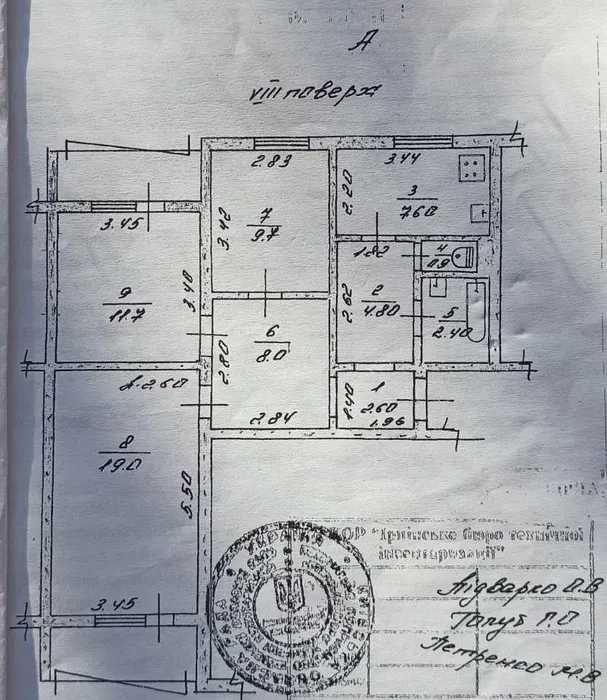 А
VIII поверх
2.83
3.44
2.20
3
7.60
3.45
3.42
7
9.7
1.82
4
0.9
9
11.7
3.40
2.62
2
4.80
5
2.40
6
8.0
2.80
h-2.60
1.40
1
2.60
1.96
2.84
8
19.0
5.50
3.45
Підварко О.В
Голуб Г.О
Петренко М.В